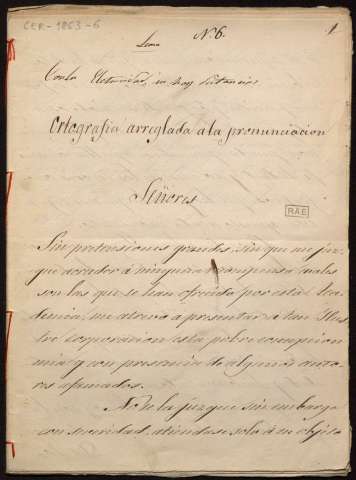 CER-1863-6
Lema Nº 6. 1
Con la
Ortografia arreglada a la pronunciacion
Señores
RAE
Sin pretensiones grandes, sin que me juz-
gue acrador a ninguna recompensa cuales
son las que se han ofrecido por esta Aca-
demia, me atrevo a presentar a tan Ilus-
tre corporacion esta pobre concepcion
mia y con presencia de algunos auto-
res afamados.
No se la juzgue sin embargo
con severidad, atiendase solo a su objeto